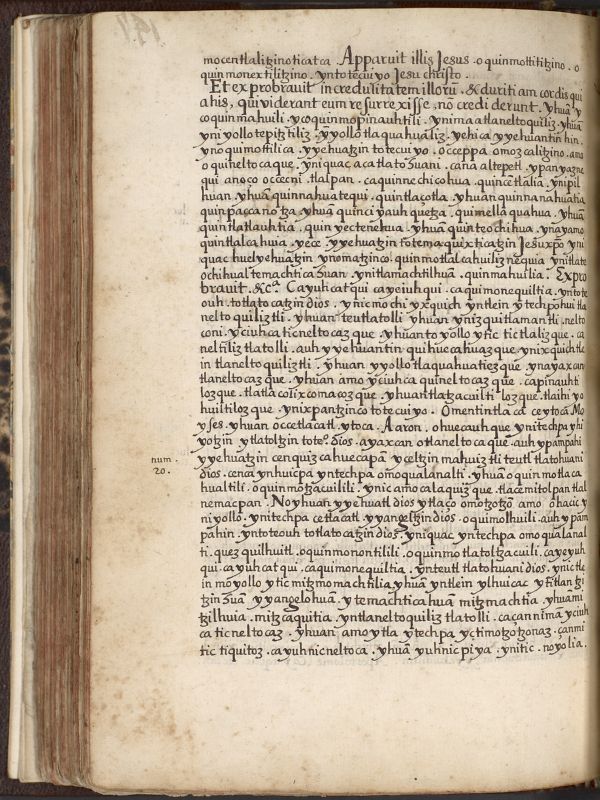 mocentlalitzinoticatca. Apparuit illis Jesus. oquinmottititzino. o
quinmonextilitzino. ynto tecuiyo Jesu christo.
Et exprobravit incredulitatem illorũ. & duritiam cordis qui
a his, qui viderant eum resurrexisse, nõ crediderunt. yhuã y
coquinmahuili. ycoquinmopinauhtili. ynimaatlaneltoquiliz. yhuã
yni yollotepitztiliz. yyollotlaquahualiz. yehica yyehuantin hin.
ynoquimottilica. yyehuatzin totecuiyo. occeppa omozcalitzino. amo
oquineltocaque. yniquac acatlatohuani. cana altepetl. ypan yazne
qui anoço occecni. tlalpan. caquinnechicohua. quincẽtlalia. ynipil
huan. yhuã quinnahuatequi. quintlaçotla. yhuan quinnanahuatia
quinpaccanõtza. yhuã quinciyauhquetza. quimellaquahua. yhuã
quintlatlauhtia. quinyectenehua. yhuã quinteochihua. ynayamo
quintlalcahuia. yece. yyehuatzin totemaquixticatzin Jesu xpõ yni
quac huelyehuatzin ynomatzinco. quinmotlalcahuiliznequia ynitlate
ochihualtemachticahuan. ynitlamachtilhuã. quinmahuilia. Expro
bravit. &cª. Ca yuhcatqui cayeiuhqui. caquimonequiltia. ynto te
ouh. totlatocatzin dios. ynic mochi yxquich yntlein ytechpohui tla
neltoquiliztli. yhuan teutlatolli yhuan ynizquitlamantli. nelto
coni. yciuhcaticneltocazque. yhuanto yollo ytic tictlalizque. ca
neltiliztlatolli. auh yyehuantin quihuecahuazque ynixquich tle
in tlaneltoquiliztli. yhuan yyollotlaquahuatiezque ynayaxcan
tlaneltocazque. yhuan amo yciuhca quineltocazque. capinauhti
lozque. tlatlacolixcomacozque. yhuantlatzacuiltilozque. tlaihiyo
huiltilozque. ynixpantzinco totecuiyo. Omentintlaca ceytoca Mo
yses. yhuan occetlacatl. ytoca. Aaron. ohuecauhque ynitechpa yhi
yotzin ytlatoltzin toteº dios. ayaxcan otlaneltocaque. auh ypampahi
yyehuatzin cenquizcahuecapã yceltzin mahuiztli teutl tlatohuani
dios. cenca ynhuicpa yntechpa omoqualanalti. yhuã oquinmotlaca
hualtili. oquinmotzacuilili. ynic amo calaquizque. tlacemitolpan tlal
nemacpan. No yhuan yyehuatl dios ytlaço omotzotzõ amo ohacic y
ni yollo. ynitechpa cetlacatl yyangeltzin dios. oquimolhuili. auh ypam
pahin. ynto teouh totlatocatzin dios. yniquac yntechpa omoqualanal
ti. quezquilhuitl. oquinmonontilili. oquinmotlatoltzacuili. cayeyuh
qui. cayuhcatqui. caquimonequiltia. ynteutl tlatohuani dios. ynictle
in moyollo ytic mitzmomachtilia yhuã yntlein ylhuicac ytitlantzi
tzinhuã yyangelohuã. ytemachticahuã mitzmachtia. yhuãmi
tzilhuia. mitzcaquitia. yntlaneltoquiliztlatolli. caçannimã yciuh
caticneltocaz. yhuan amo ytla ytechpa yctimotzotzonaz. çanmi
tictiquitoz. cayuhnicneltoca. yhuã yuhnicpiya. ynitic. noyolia.
num.
20.